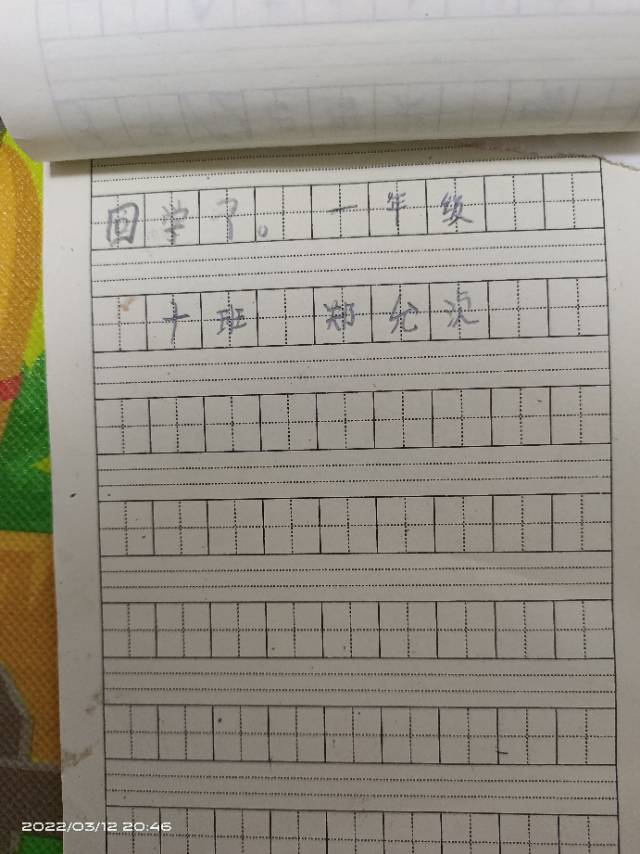 回学了。一年级
十班 郑允浈
2022/03/12 20:46